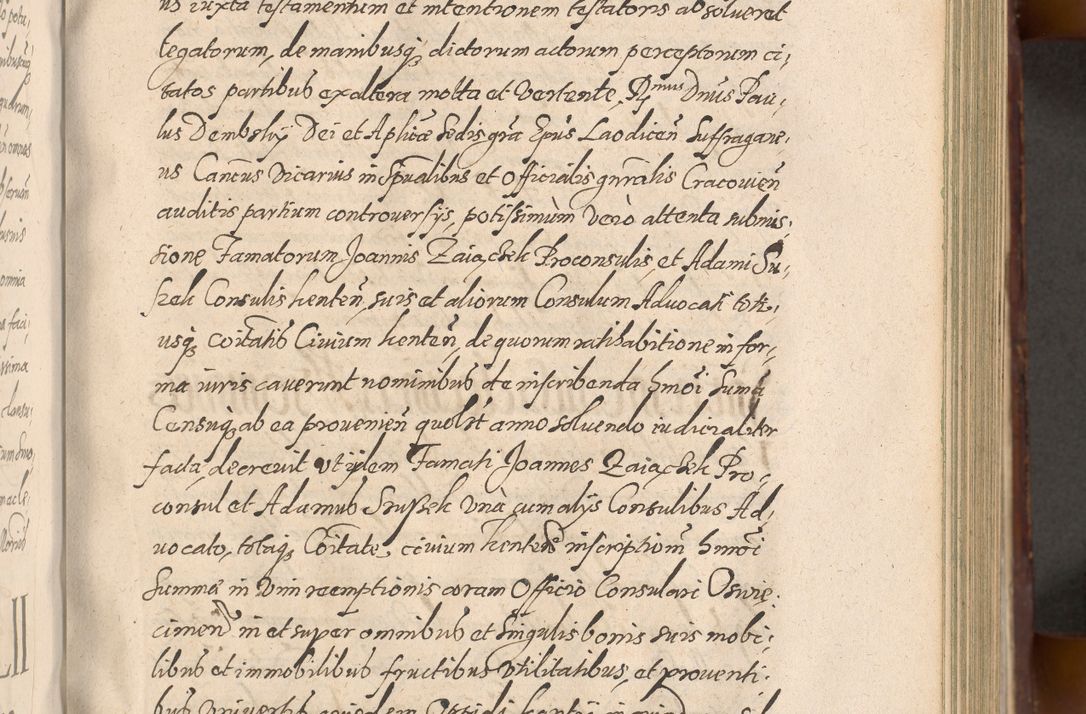 us iuxta testamentum et intentionem testatoris absolueret
legatorum, de manibusq́ dictorum actorum perceptorum ci,
tatos partibus ex altera motta et vertente. Rmus Dnus Pau,
lus Dembskÿ Dei et Aplicæ Sedis gra Epus Laodicen̄ Suffragane,
us Cancus Vicarius in Spualibus et Officialis gnralis Cracouien̄
auditis partium controuersÿs, potissimùm verò attenta submis,
sione Famatorum Joannis Zaiączek Proconsulis, et Adami Su,
szek Consulis kenten̄, suis et aliorum Consulum Aduocati toti,
usq́ Coitatis Ciuium kenten̄, de quorum ratihabitione in for,
ma iuris cauerunt nominibus de inscribenda hmoi suma
Censuq́ ab ea prouenien̄ quolt anno soluendo iudicialiter
facta, decreuit vt ÿdem Famati Joannes Zaiączek Pro,
consul et Adamus Szuszek vnà cum alÿs Consulibus Ad,
uocato, totaq́ Coitate, ciuium kenten̄ inscriptiom̄ hmoi
summæ in vim reemptionis coram Officio Consulari Oswię,
cimen̄ in et super omnibus et singulis bonis suis mobi,
libus et immobilibus fructibus vtilitatibus, et prouenti,
bus vniuersis eiusdem Oppidi